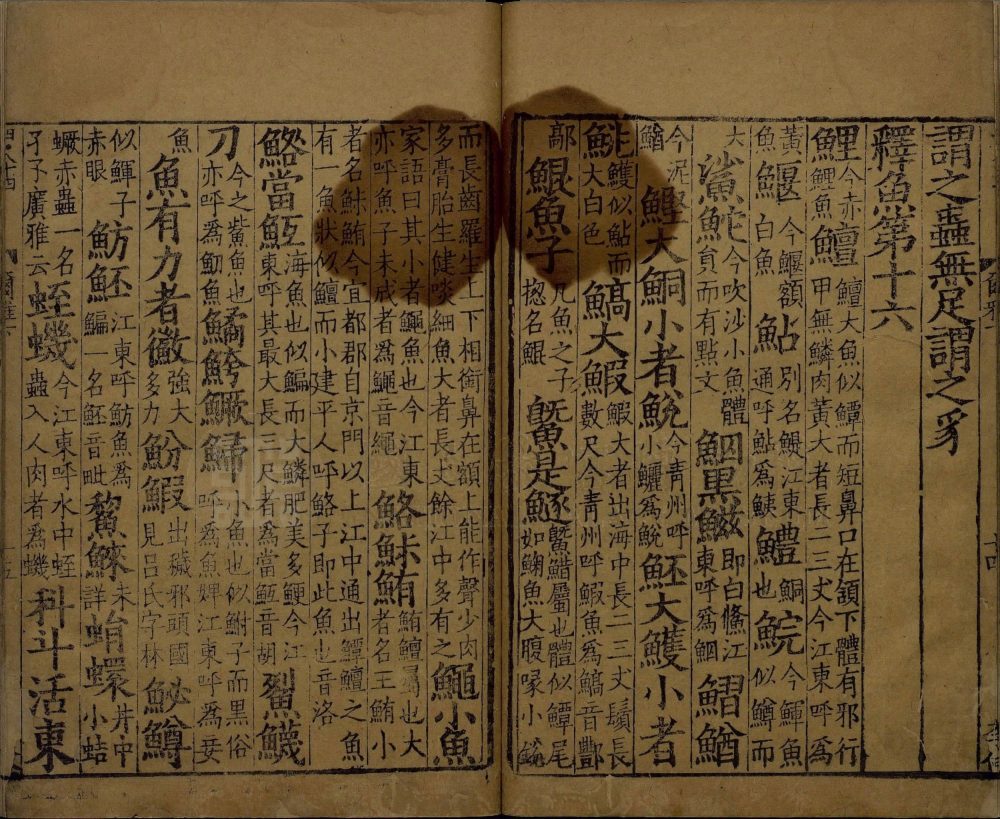 謂之蟲無足謂之豸
釋魚第十六
鯉今赤鯉魚鱣鱣大魚似鱏而短鼻口在頷下體有邪行甲無鱗肉黃大者長二三丈今江東呼爲
黃魚鰋今鰋額白魚鮎別名鯷江東通呼鮎爲鮧鱧鮦也鯇今鯶魚似鱒而
大鯊鮀今吹沙小魚體負而有點文鮂黑鰦即白鯈江東呼爲鮂鰼鰌
今泥鰌鰹大鮦小者鮵今青州呼小鱺爲鮵魾大鱯小者
鮡鱯似鮎而大白色鰝大鰕鰕大者出海中長二三丈鬚長數尺今青州呼鰕魚爲鰝音酆
鄗鯤魚子凡魚之子揔名鯤鱀是鱁鱀䱜屬也體似鱏尾如䱡魚大腹喙小銳
而長齒羅生上下相銜鼻在額上能作聲少肉多膏胎生健啖細魚大者長丈餘江中多有之鱦小魚
家語曰其小者鱦魚也今江東亦呼魚子未成者爲鱦音繩鮥鮛鮪鮪鱣屬也大者名王鮪小
者名鮛鮪今宜都郡自京門以上江中通出鱏鱣之魚有一魚狀似鱣而小建平人呼鮥子即此魚也音洛
鯦當魱海魚也似鯿而大鱗肥美多鯁今江東呼其最大長三尺者爲當魱音胡鮤鱴
刀今之鮆魚也亦呼爲魛魚鱊鮬鱖鯞小魚也似鮒子而黑俗呼爲魚婢江東呼爲妾
魚魚有力者徽強大多力魵鰕出穢邪頭國見呂氏字林鮅鱒
似鯶子赤眼魴魾江東呼魴魚爲鯿一名魾音毗鯬鯠未詳蜎蠉井中小蛣
蟩赤蟲一名孑孑廣雅云蛭蟣今江東呼水中蛭蟲入人肉者爲蟣科斗活東